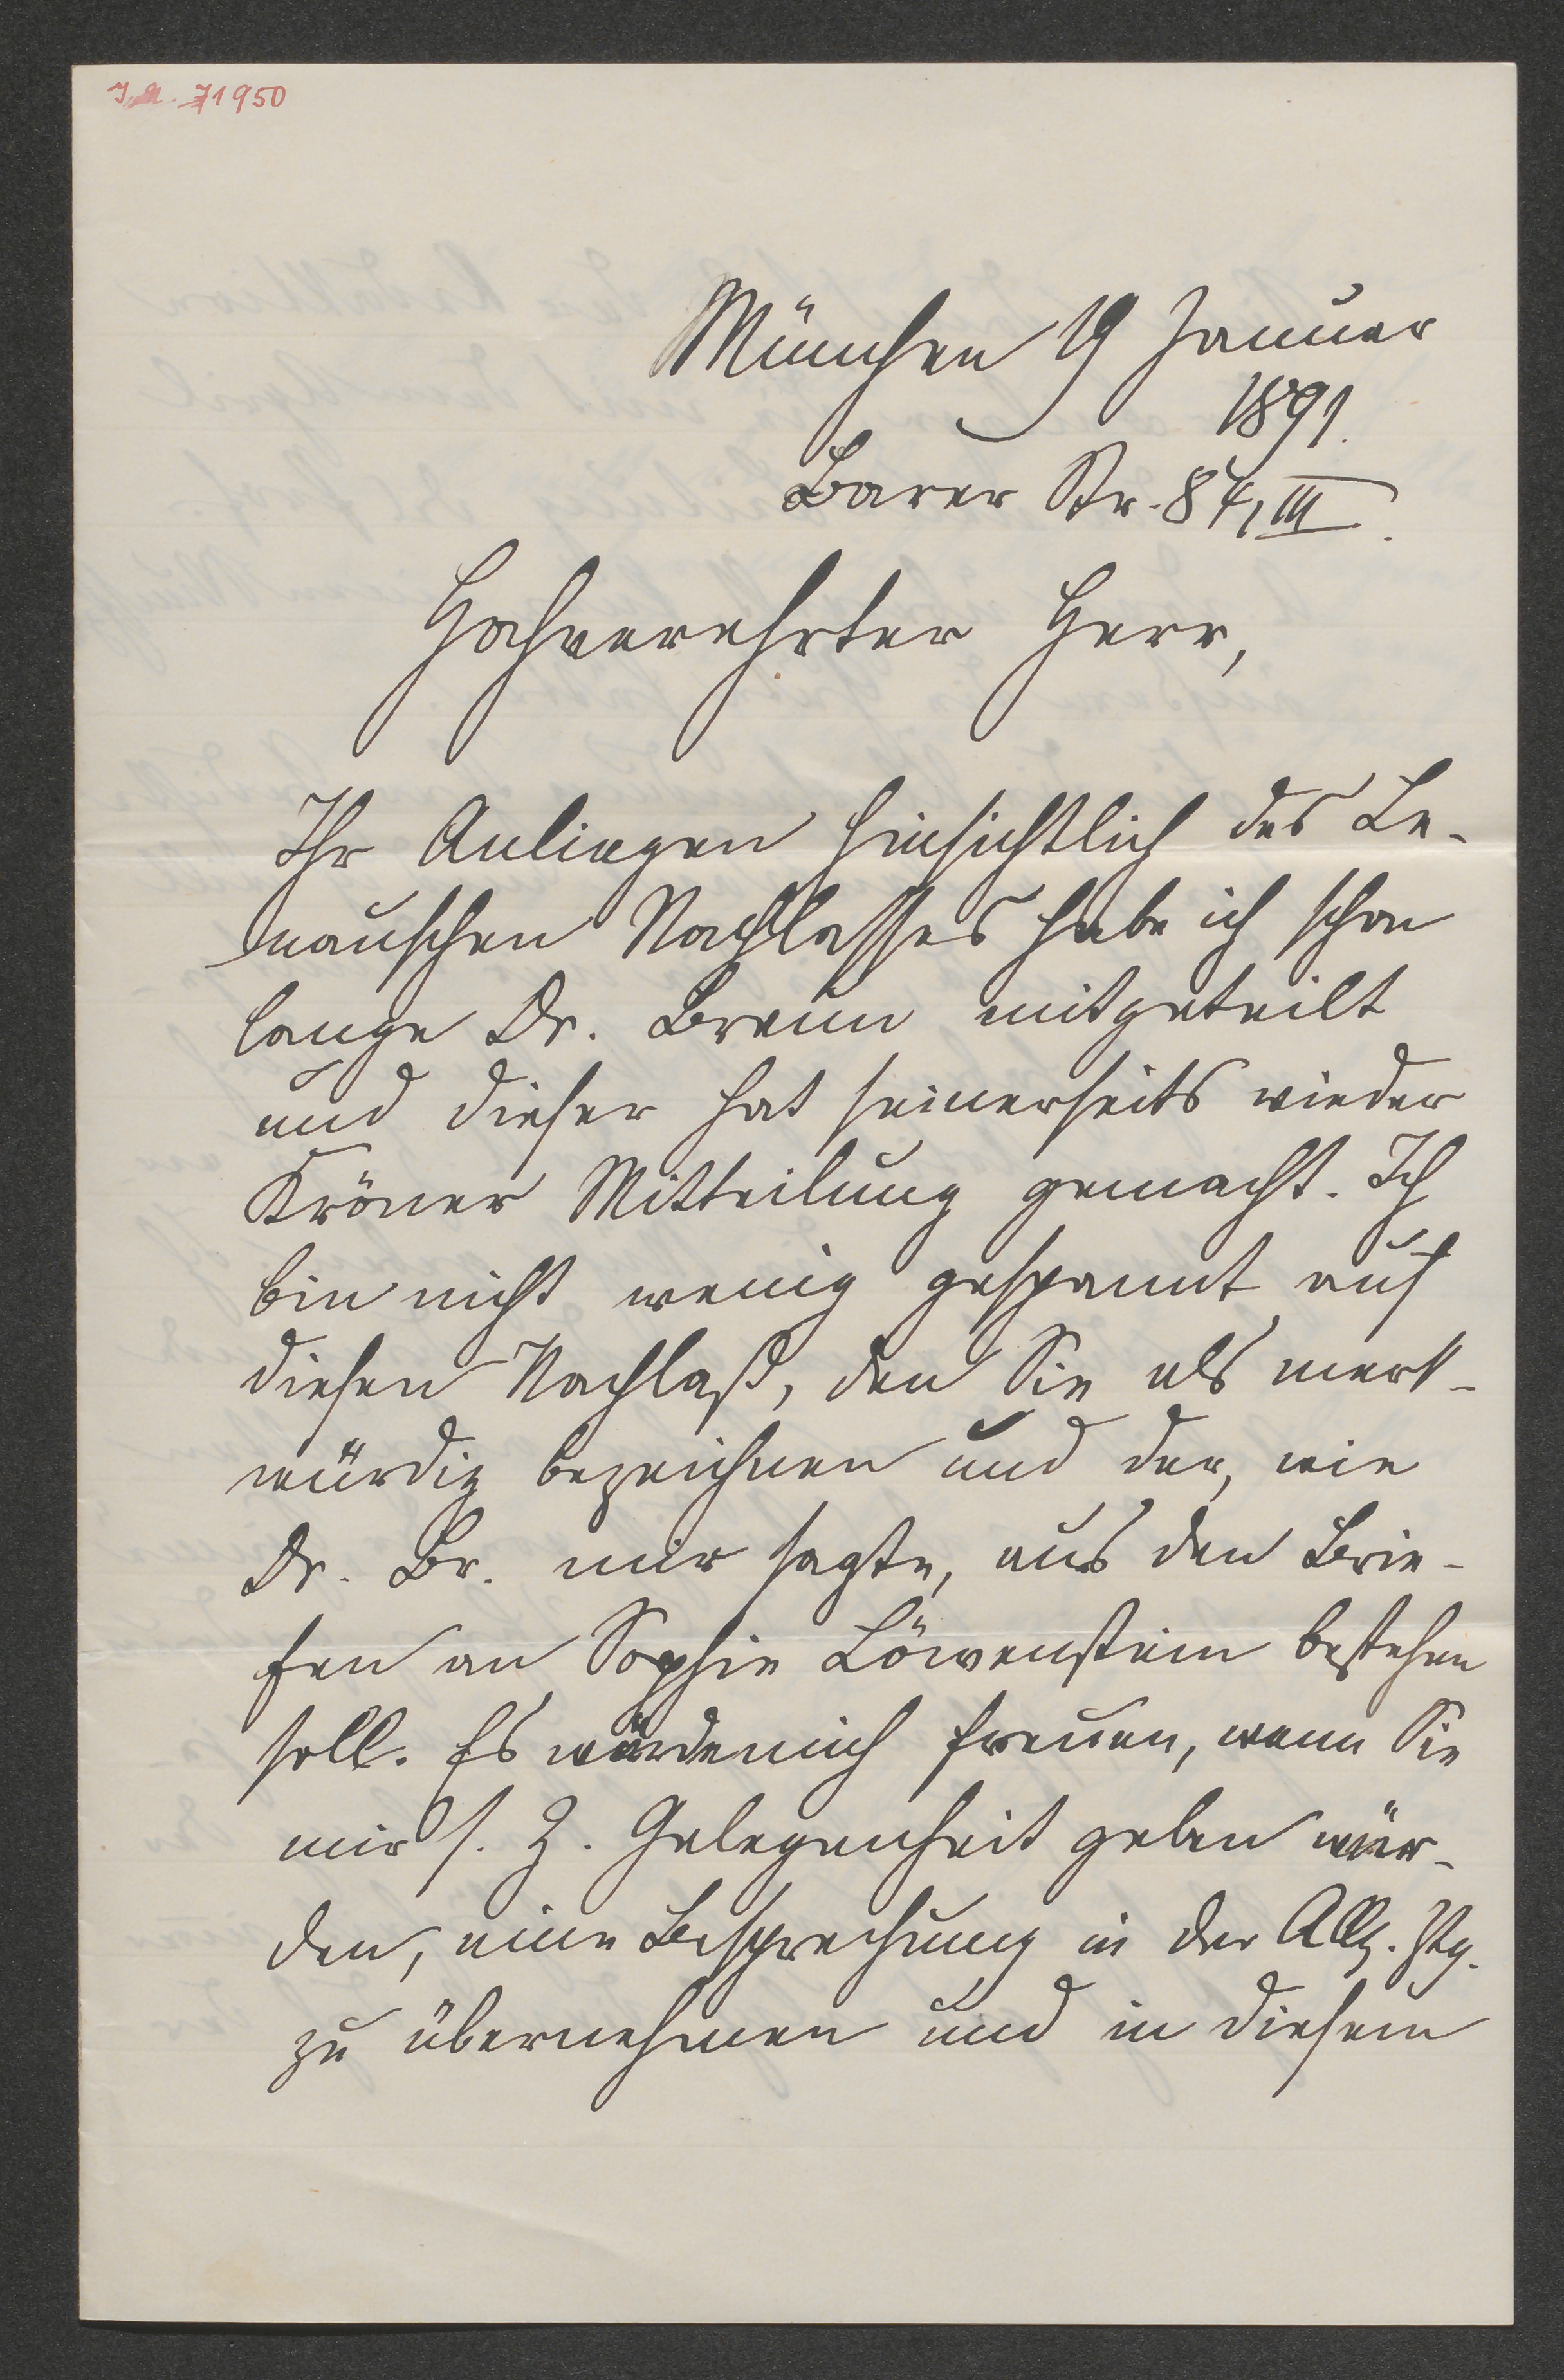 J. N. 71950
München 19 Januar
1891.
Barer Str. 84, III.
Hochverehrter Herr,
Ihr Anliegen hinsichtlich des Le-
nauschen Nachlasses habe ich schon
lange Dr. Braun mitgeteilt
und dieser hat seinerseits wieder
Kröner Mitteilung gemacht. Ich
bin nicht wenig gespannt auf
diesen Nachlaß, den Sie als merk-
würdig bezeichnen und der, wie
Dr. Br. mir sagte, aus den Brie-
fen an Sophie Löwenstein bestehen
soll. Es würde mich freuen, wenn Sie
mir s. Z. Gelegenheit geben wür-
den, eine Besprechung in der Allg. Ztg.
zu übernehmen und in diesem